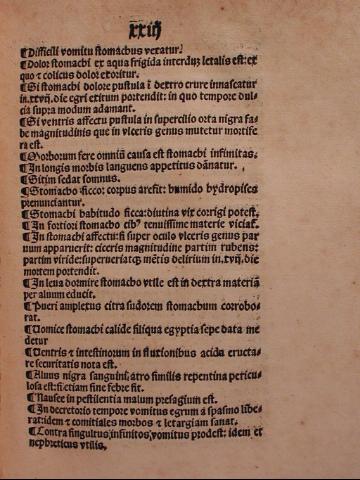 xxiij
¶Difficili vomitu stomachus vexatur.
¶Dolor stomachi ex aqua frigida interduȝ letalis est: ex
quo & colicus dolor exoritur.
¶Si stomachi dolore pustula ī dextro crure innascatur
in.xxvij. die egri exitum portendit: in quo tempore dul-
cia supra modum adamant.
¶Si ventris affectu pustula in supercilio orta nigra fa-
be magnitudinis que in vlceris genus mutetur mortife
ra est.
¶Morborum fere omniū causa est stomachi infirmitas.
¶In longis morbis languens appetitus dānatur.
¶Sitim sedat somnus.
¶Stomacho sicco: corpus arefit: humido hydropisea
prenunciantur.
¶Stomachi habitudo sicca: diutina vix corrigi potest.
¶In fortiori stomacho cib⁹ tenuissime materie viciat̄.
¶In stomachi affectu: si super oculo vlceris genus par
uum apparuerit: ciceris magnitudine partim rubens:
partim viride: superueniatqȝ mētis delirium in.xvij. die
mortem portendit.
¶In leua dormire stomacho vtile est in dextra materiā
per aluum educit.
¶Pueri amplexus citra sudorem stomachum corrobo-
rat.
¶Vomice stomachi calide siliqua egyptia sepe data me
detur
¶Ventris & intestinorum in fluxionibus acida eructa-
re securitatis nota est.
¶Aluus nigra sanguini, atro similis repentina pericu-
losa est: si etiam sine febre fit.
¶Nausee in pestilentia malum presagium est.
¶In decretorio tempore vomitus egrum a spasmo libe-
rat: idem & comitiales morbos & letargiam sanat.
¶Contra singultus, infinitos, vomitus prodest: idem et
nephreticus vtilis.